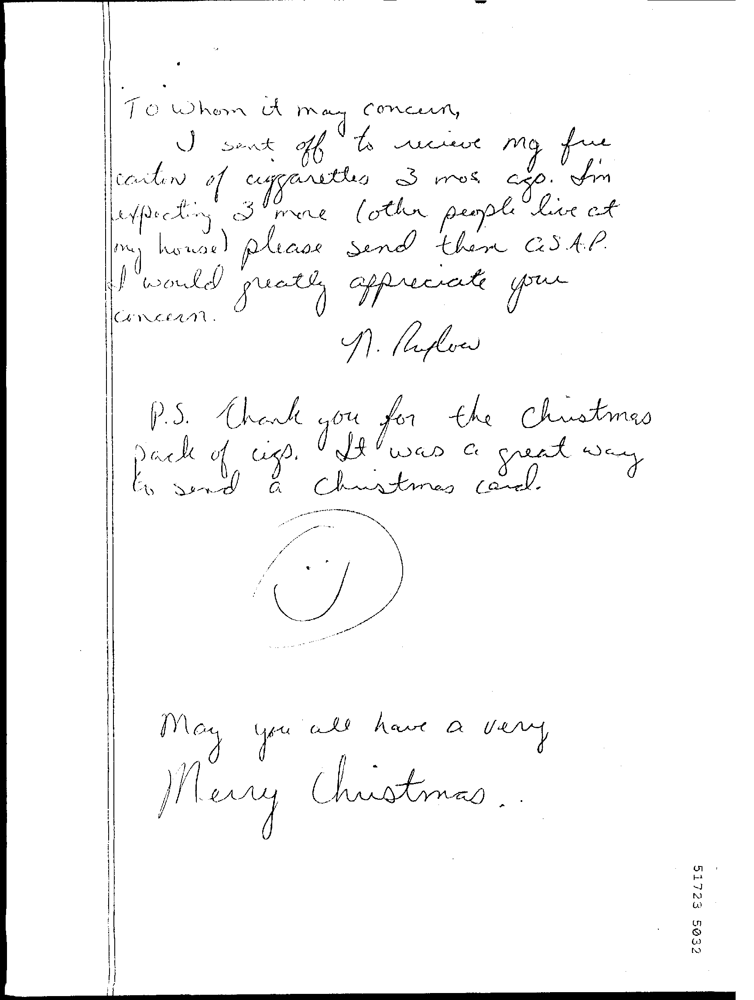 To whom it may concern,
I sent off to recieve my free
carton of ciggarettes 3 mos. ago. I'm
expecting 3 more (other people live at
my house) please send them A.S.A.P.
I would greatly appreciate your
concern.
N.
P.S. Thank you for the Christmas
pack of cigs. It was a great way
to send a Christmas card.
May you all have a very
Merry Christmas..
51723 5032